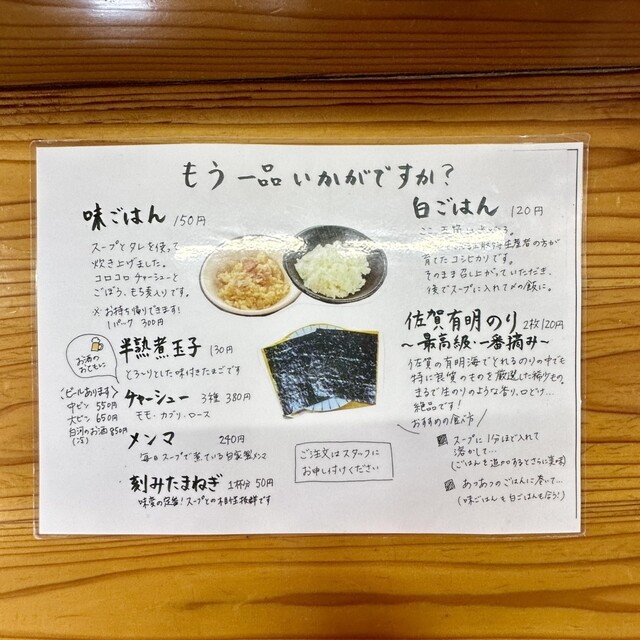 もう一品いかがですか？
味ごはん 150円
スープとタレを使って
炊き上げました。
コロコロチャーシューと
ごぼう、もち麦入りです。
※お持ち帰りできます!
1パック 300円
半熟煮玉子 130円
とろ〜りとした味付きたまごです
チャーシュー 3種 380円
モモ・カブリ・ロース
メンマ 240円
毎日スープで煮ている自家製メンマ
刻みたまねぎ 1杯分 50円
味変の定番!スープとの相性抜群です
お酒の
おともに
ビールあります
中ビン 550円
大ビン 650円
白河のお酒 850円
(冷)
白ごはん 120円
生産者の方が
育てたコシヒカリです。
そのまま召し上がっていただき、
後でスープに入れて〆の飯に。
佐賀有明のり 2枚120円
〜最高級・一番摘み〜
佐賀の有明海でとれるのりの中でも
特に良質のものを厳選した稀少もの。
まるで生のりのような香り、口どけ…
絶品です!
おすすめの食べ方
スープに1分ほど入れて
溶かして…
(ごはんを追加するとさらに美味)
あつあつのごはんに巻いて…
(味ごはんも白ごはんも合う!)
ご注文はスタッフに
お申し付けください